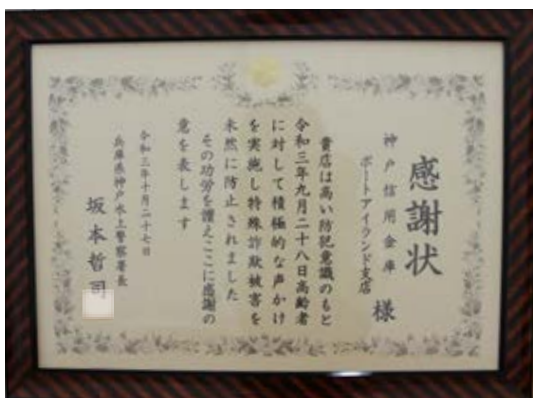 感謝状
神戸信用金庫
ポートアイランド支店 様
貴店は高い防犯意識のもと
令和三年九月二十八日高齢者
に対して積極的な声かけ
を実施し特殊詐欺被害を
未然に防止されました
その功労を讃えここに感謝の
意を表します
令和三年十月二十七日
兵庫県神戸水上警察署長
坂本哲司